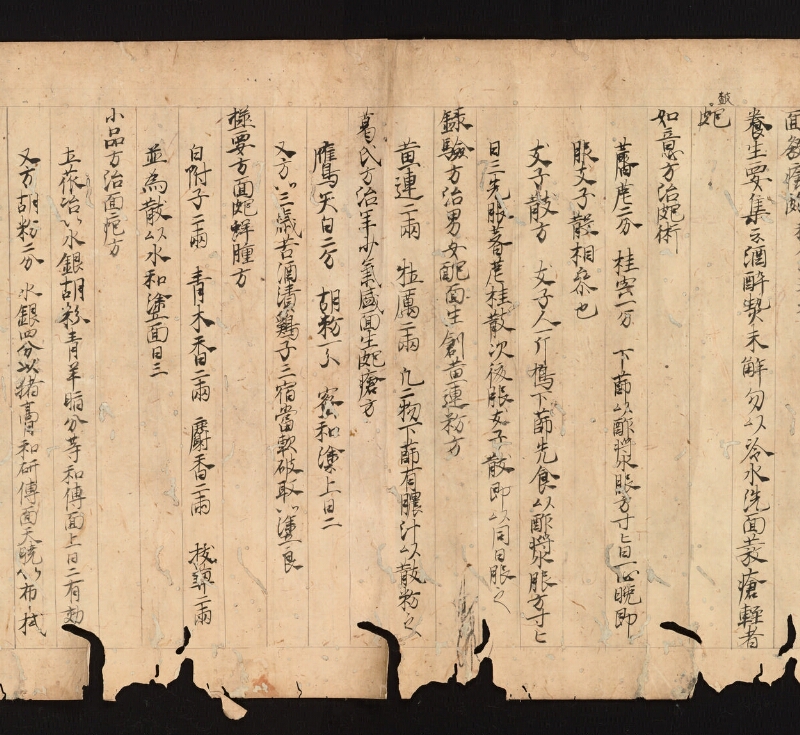 養生要集云酒醉熱未解勿以冷水洗面發瘡輕者
皰
如意方治皰術
蕃荁二分 桂害一分 下篩以酢漿服方寸匕日一心晚即
服支子散相參也
支子散方 支子人一斤擣下篩先食以酢漿服方寸匕
日三先服蕃荁桂散次後服支子散即以同日服之
錄驗方治男女皰面生創黃連粉方
黃連二兩 牡蠣二兩 凡二物下篩有膿汁以散粉之
葛氏方治年少氣盛面生皰瘡方
鷹矢白二分 胡粉一分 蜜和塗上日二
又方以三歲苦酒漬鷄子三宿當軟破取以塗良
極要方面皰鮮腫方
白附子二兩 青木香二兩 麝香二兩 拔葜二兩
並為散以水和塗面日三
小品方治面皰方
立在治以水銀胡粉青羊脂分等和傅面上日二有効
又方胡粉二分 水銀四分以猪膏和研傅面天曉以布拭